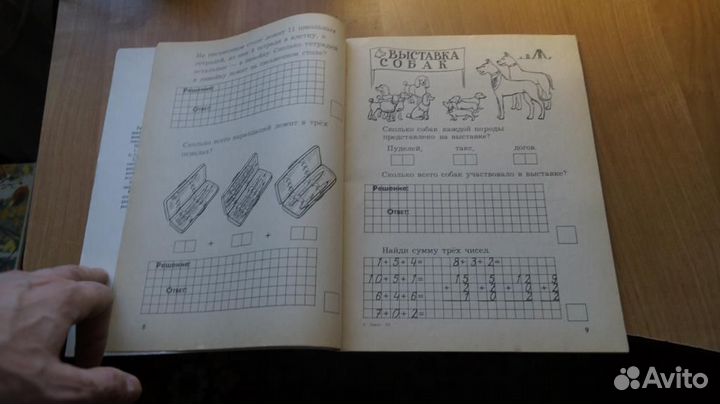 На письменном столе лежат 11 школьных
тетрадей, из них 8 тетрадей в клетку, а
остальные — в линейку. Сколько тетрадей
в линейку лежит на письменном столе?
Решение:
Ответ:
Сколько всего карандашей лежит в трёх
пеналах?
+ +
Решение:
Ответ:
8
ВЫСТАВКА
СОБАК
Сколько собак каждой породы
представлено на выставке?
Пуделей, такс, догов.
Сколько всего собак участвовало в выставке?
Решение:
Ответ:
Найди сумму трёх чисел.
1+5+4= 8+3+2=
10+5+1= 15 5 12 9
+ 2 + 2 + 0 + 2
6+4+6= 7 0 2 2
7+0+2=
9
Avito